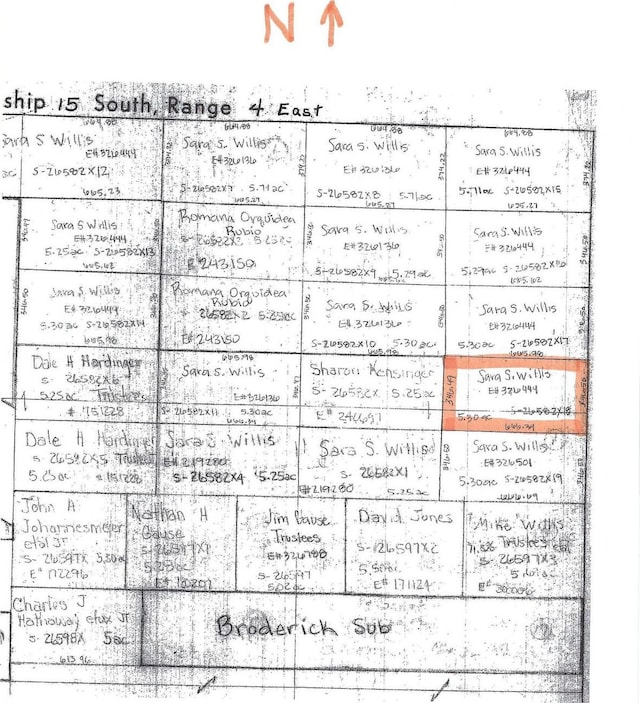 N ↑
ship 15 South, Range 4 East
664.88
664.88
664.88
664.88
Sara S Willis
E# 326444
S-26582X12
665.23
Sara S. Willis
E# 326136
S-26582X7 5.71ac
665.27
374.22
Sara S. Willis
E# 326136
S-26582X8 5.71ac
665.27
374.22
Sara S. Willis
E# 326444
5.71ac S-26582X15
665.27
Sara S Willis
E# 326444
5.25ac S-26582X13
665.62
Romana Orquidea
Rubio
S-26582X2 5.25ac
E# 243150
Sara S. Willis
E# 326136
S-26582X9 5.29ac
Sara S. Willis
E# 326444
5.29ac S-26582X16
665.62
Sara S. Willis
E# 326444
5.30ac S-26582X14
665.98
Romana Orquidea
Rubio
S-26582X2 5.25ac
E# 243150
Sara S. Willis
E# 326136
S-26582X10 5.30ac
665.98
Sara S. Willis
E# 326444
5.30ac S-26582X17
665.98
Dale H Hardinger
S-26582X6
5.25ac Trustees
# 751228
665.98
Sara S. Willis
E# 326136
S-26582X11 5.30ac
Sharon Kensinger
S-26582X 5.25ac
E# 246697
346.49
Sara S. Willis
E# 326444
5.30ac S-26582X18
666.34
Dale H Hardinger
S-26582X5 Trustees
5.25ac # 751228
Sara S. Willis
E# 219280
S-26582X4 5.25ac
Sara S. Willis
S-26582X1
E# 219280 5.25ac
346.50
Sara S. Willis
E# 326501
5.30ac S-26582X19
666.69
John A
Johannesmeyer
etal JT
S-26597X 5.50ac
E# 172296
Nathan H
Gause
S-26597X1
5.25ac
Jim Gause
Trustees
E# 326788
S-26597
5.02ac
David Jones
S-26597X2
5.50ac
E# 171124
Mike Willis
Trustees etal
S-26597X3
Charles J
Hathaway etux JT
S-26598X 5ac
613.96
Broderick Sub